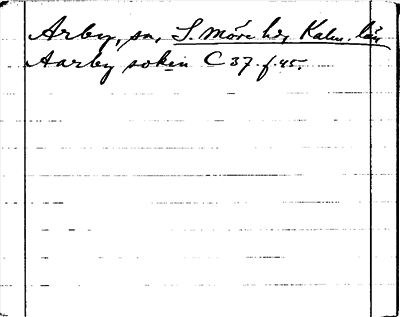 Arby, sn, S. Möre hd, Kalm. län
Aarby sokin C 37. f. 45.